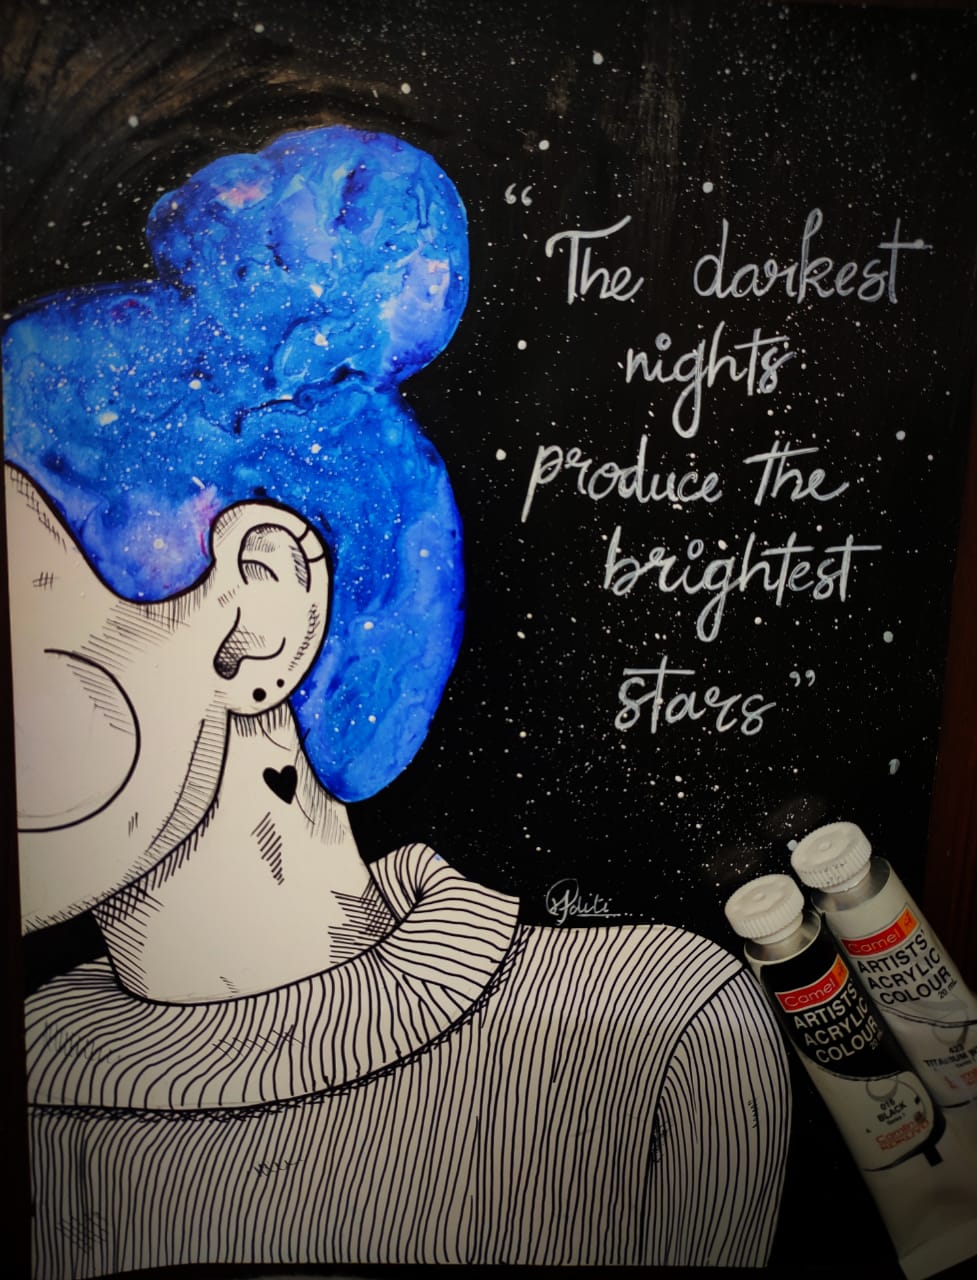 “The darkest
nights
produce the
brightest
stars”
Aditi
Camel
ARTISTS'
ACRYLIC
COLOUR
20 ml
Camel
ARTISTS'
ACRYLIC
COLOUR
016
BLACK